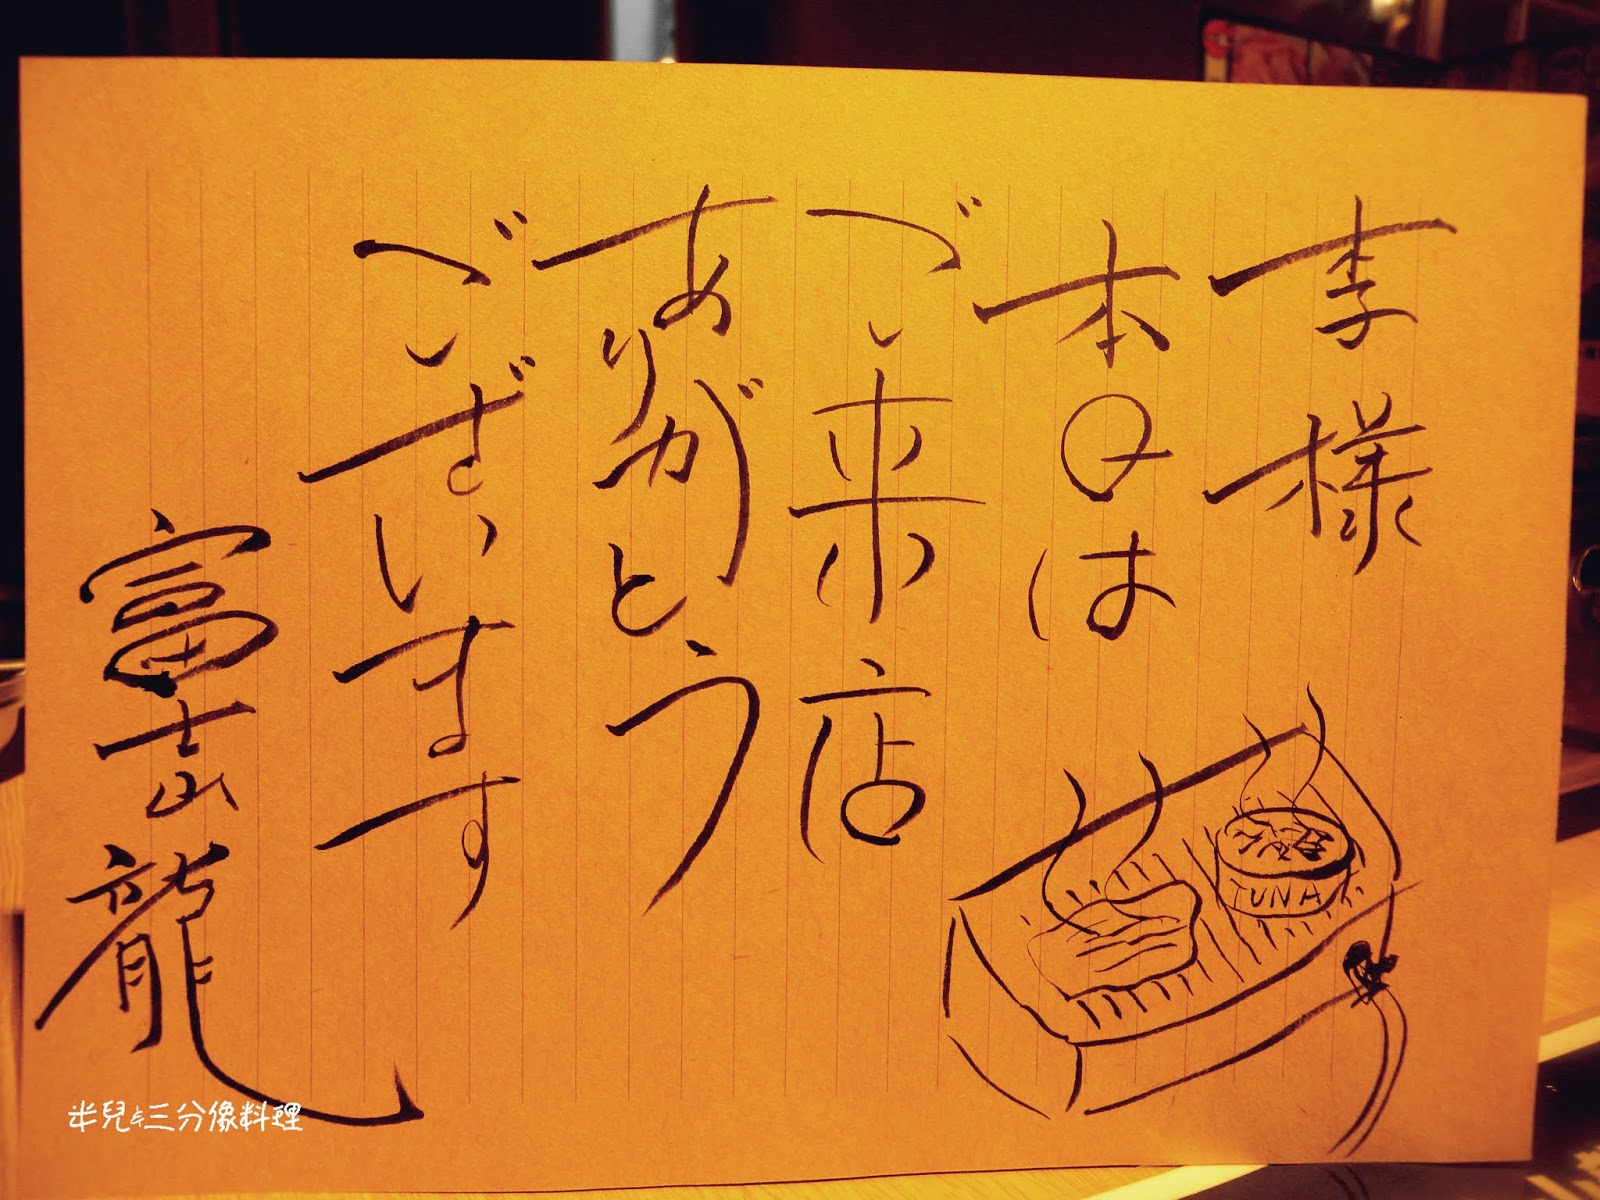 李様
本日は
ご来店
ありがとう
ございます
富士山龍
TUNA
半兒と三分像料理